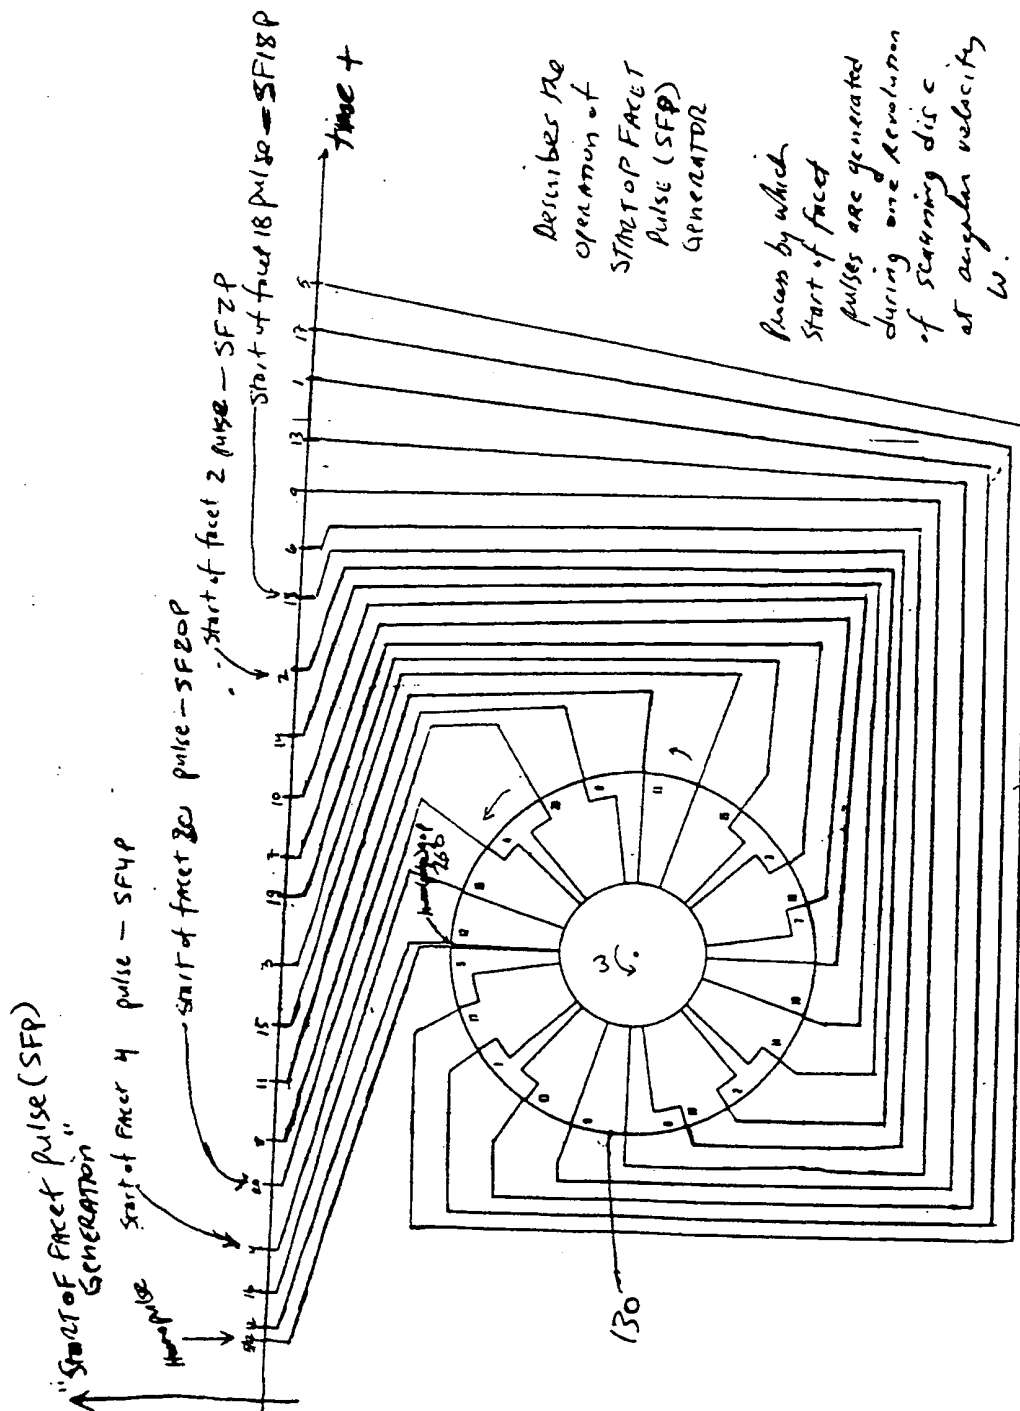 "START OF FACET pulse (SFP)
GENERATION"
Home pulse
Start of FACET 4 pulse - SF4P
Start of facet 20 pulse - SF20P
Start of facet 2 pulse - SF2P
Start of facet 18 pulse - SF18P
16 4 20 8 11 15 3 19 7 10 14 2 18 6 9 13 1 17 5
time t
12 16 4 20 8 11 15 3 7 10 14 2 18 6 9 13 1 17 5
ω
130
Describes the
OPERATION of
START OF FACET
Pulse (SFP)
GENERATOR
Process by which
Start of facet
pulses are generated
during one revolution
of scanning disc
at angular velocity
ω.